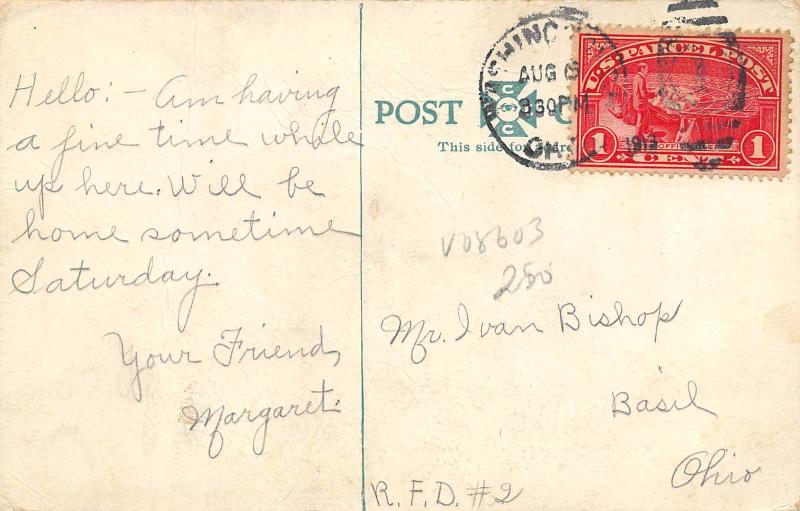 Hello:- Am having
a fine time while
up here. Will be
home sometime
Saturday.
Your Friend,
Margaret.
POST
This side for
AUG
830PM
1913
U.S. PARCEL POST
1 1
V08603
250
Mr. Ivan Bishop
Basil
Ohio
R.F.D. #2